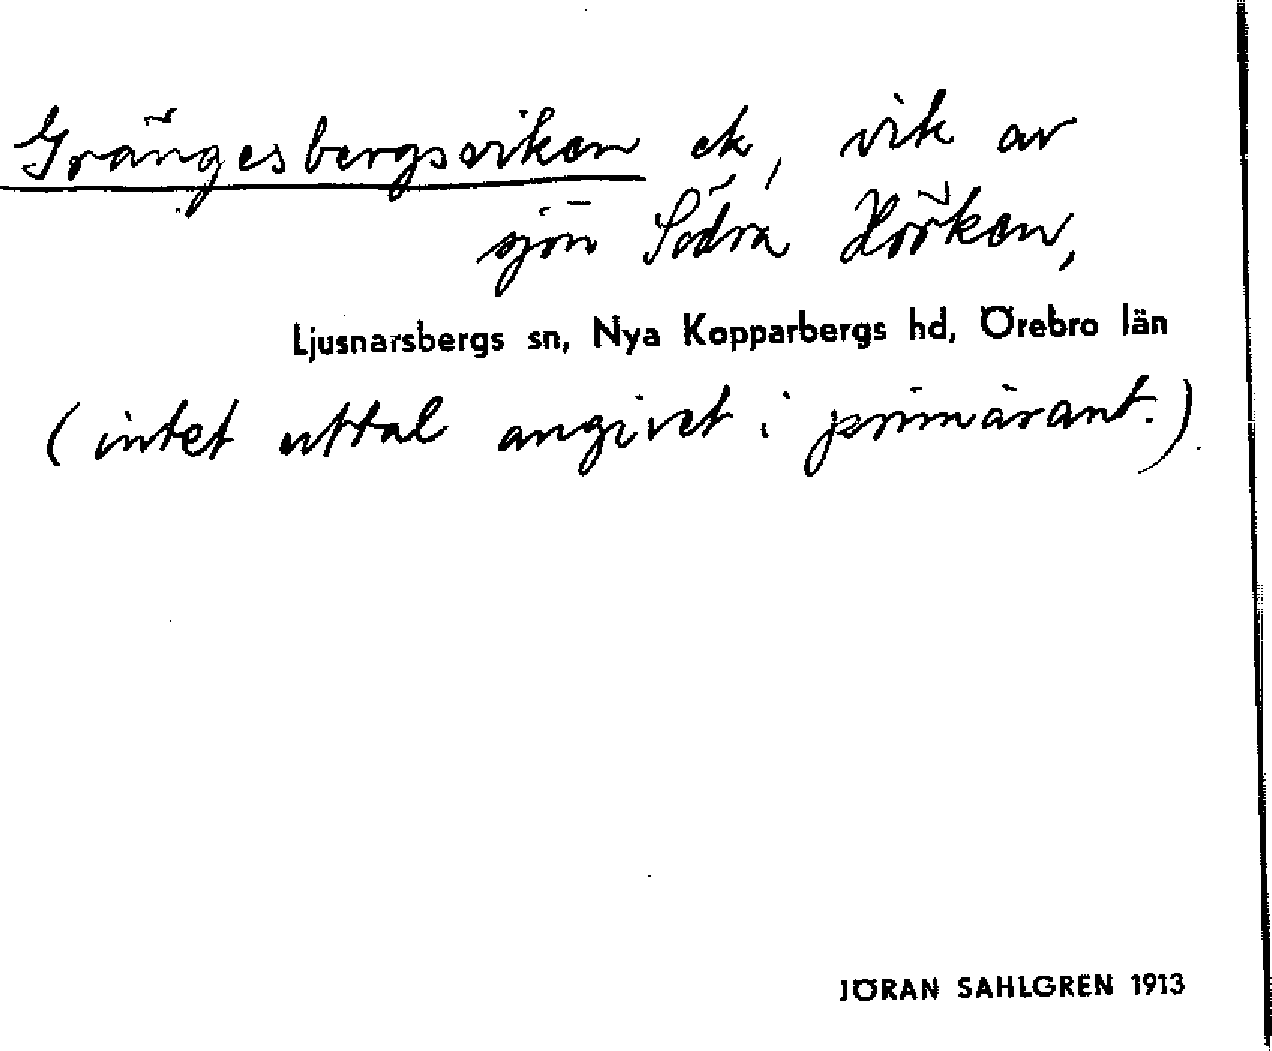 Grängesbergsviken ek, vik av
sjön Södra Hörken,
Ljusnarsbergs sn, Nya Kopparbergs hd, Örebro län
(intet uttal angivet i primärant.)
JÖRAN SAHLGREN 1913